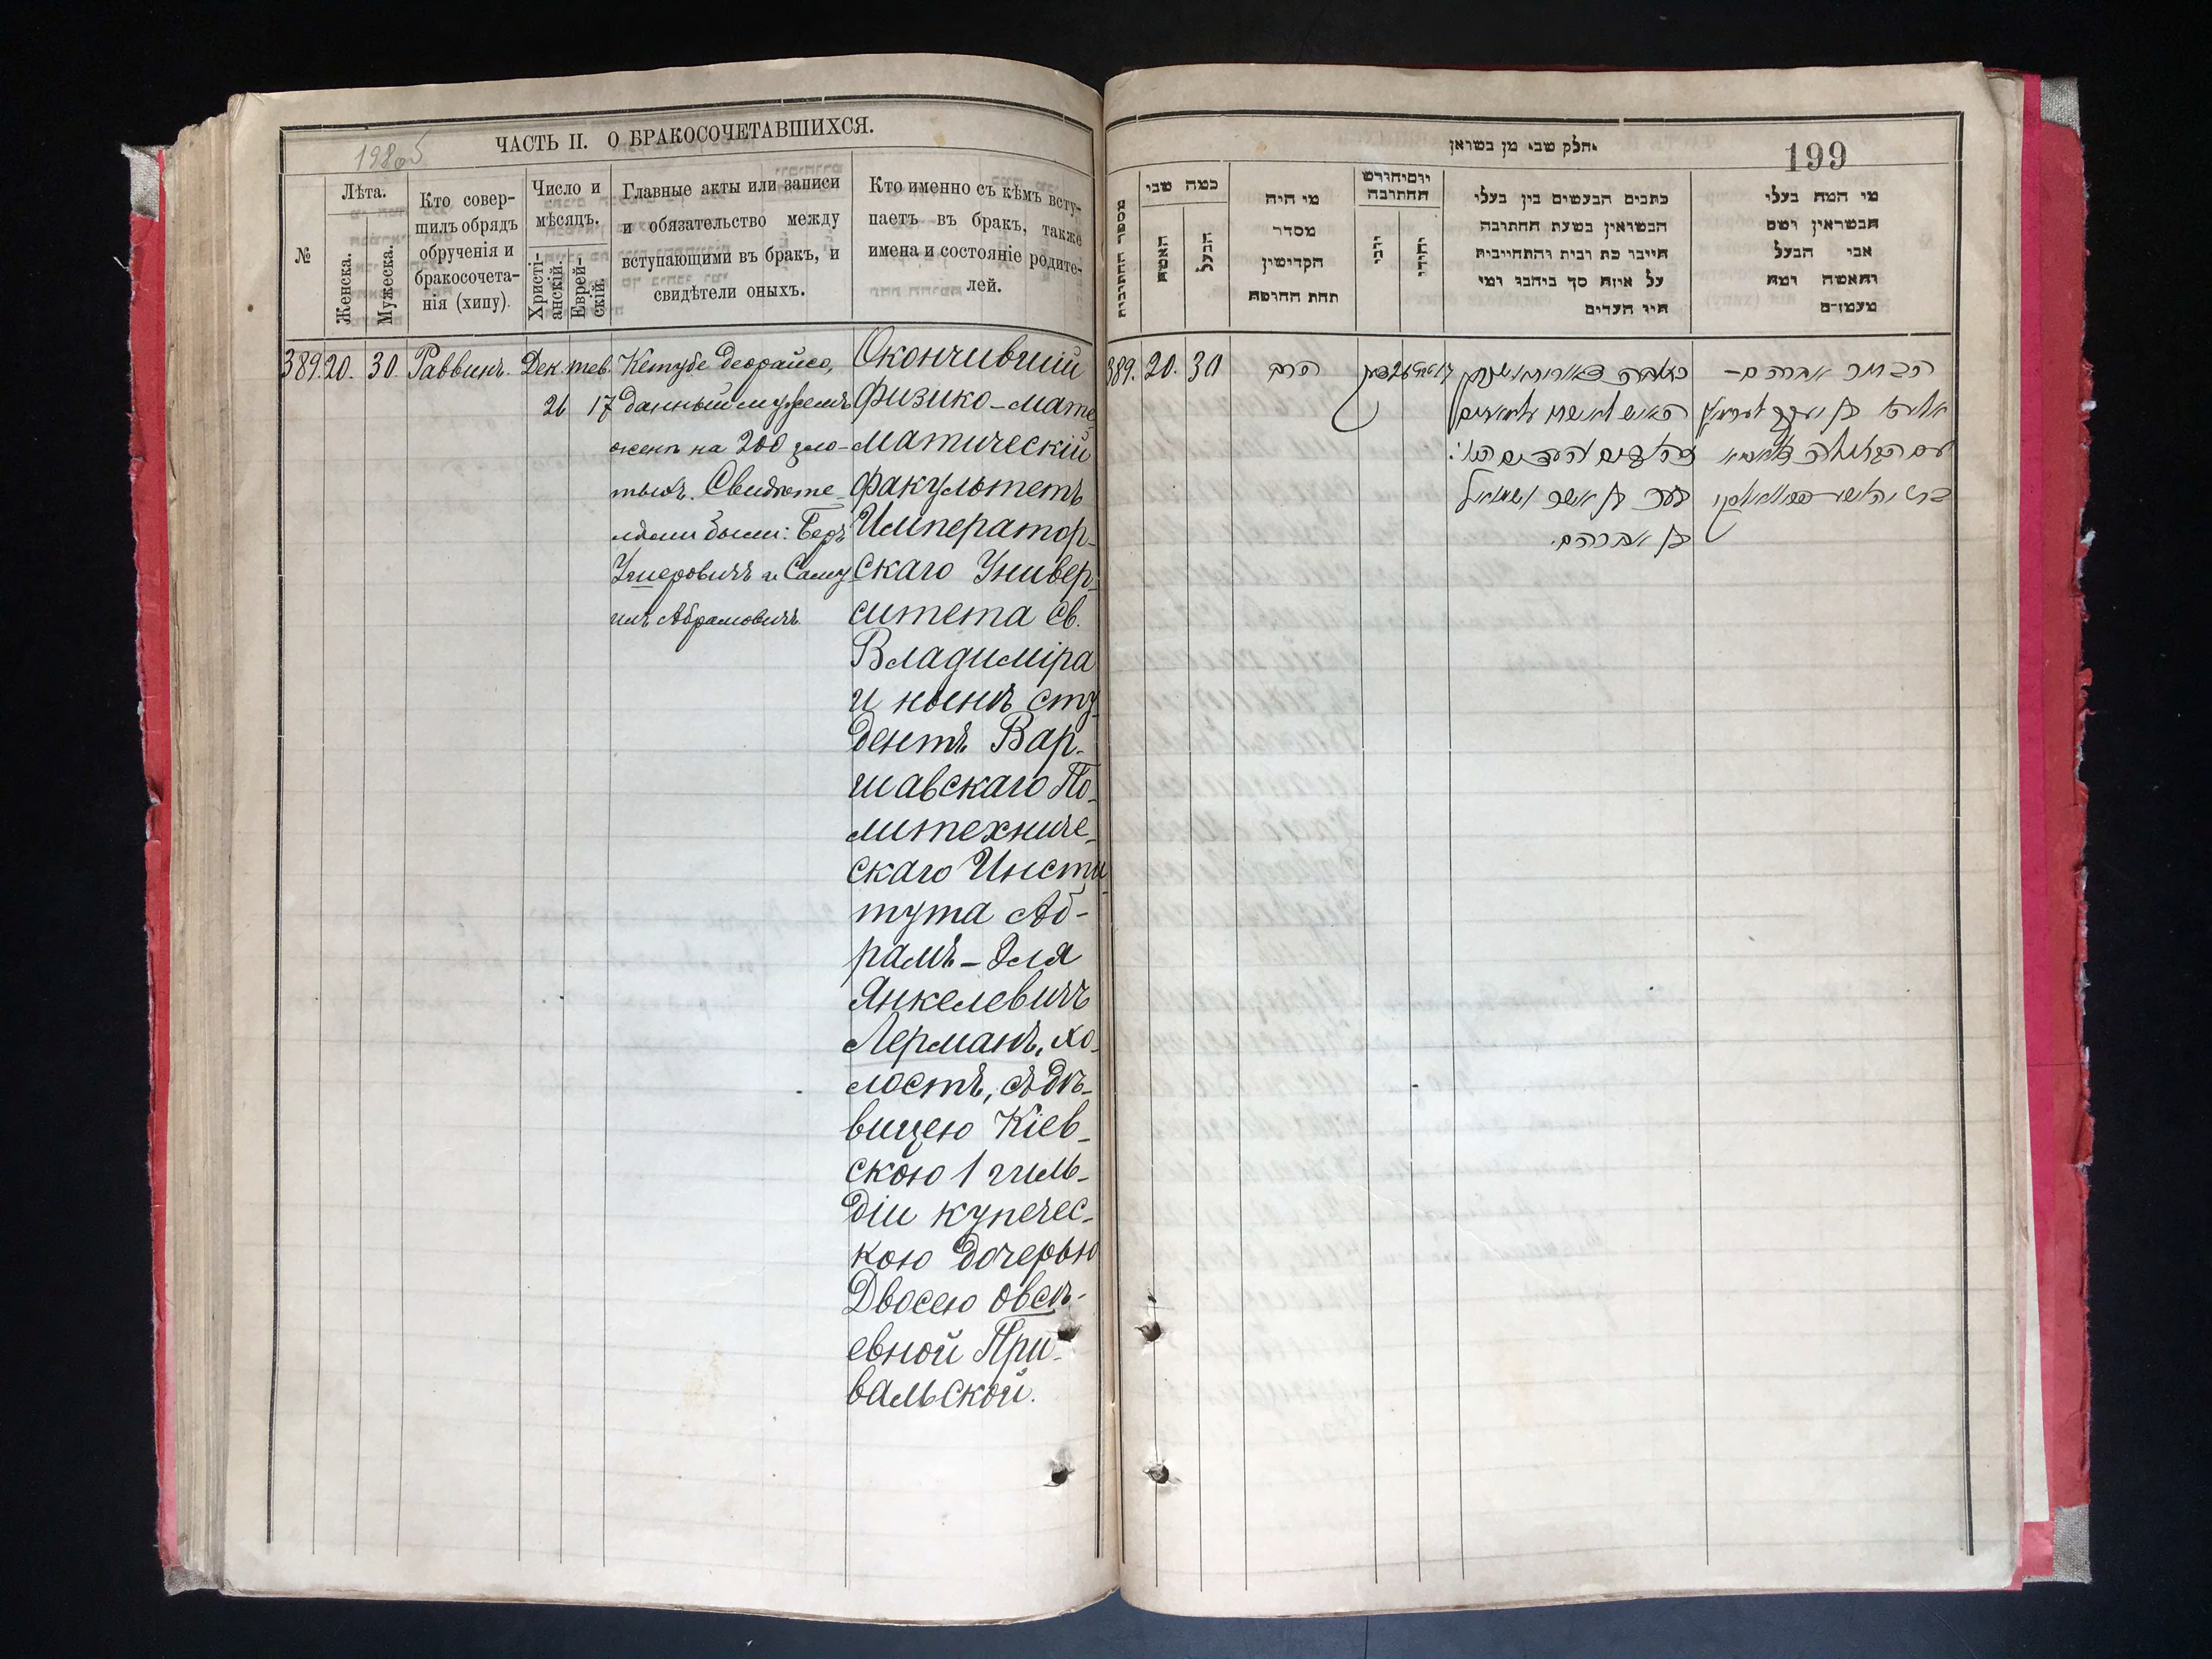 ЧАСТЬ II. О БРАКОСОЧЕТАВШИХСЯ.
№
Лѣта.
Женска.
Мужеска.
Кто совер-
шилъ обрядъ
обрученія и
бракосочета-
нія (хипу).
Число и
мѣсяцъ.
Христі-
анскій.
Еврей-
скій.
Главные акты или записи
и обязательство между
вступающими въ бракъ, и
свидѣтели оныхъ.
Кто именно съ кѣмъ всту-
паетъ въ бракъ, также
имена и состояніе родите-
лей.
389.
20.
30.
Раввинъ.
Дек.
26
тев.
17
Кетубе деорайсо,
данный мужемъ
женѣ на 200 зло-
тыхъ. Свидѣте-
лями были: Беръ
Ушеровичъ и Саму
илъ Абрамовичъ
Окончившій
физико-мате-
матическій
факультетъ
Император-
скаго Универ-
ситета Св.
Владиміра
и нынѣ сту-
дентъ Вар-
шавскаго По-
литехниче-
скаго Инсти-
тута Аб-
рамъ-Эля
Янкелевичъ
Лерманъ, хо-
лостъ, съ дѣ-
вицею Кіев-
скою 1 гиль-
діи купечес-
кою дочерью
Двосею Овсѣ-
евной При-
вальской.
חלק שני מן
199
מספר החתונות
כמה שני
האשה
הבעל
מי היה
מסדר
הקדישין
תחת החופה
יום וחודש
החתונה
יוני
יהודי
כתבים הנעשים בין בעלי
הנשואין בשעת החתונה
חייבי כת ובית והתחייבית
על איזה סך ביהבי ומי
היו העדים
מי המה בעלי
הנשואין ושם
אבי הבעל
והאשה ומה
מעמדם
389.
20.
30
הרב
26
17
בן אברהם.